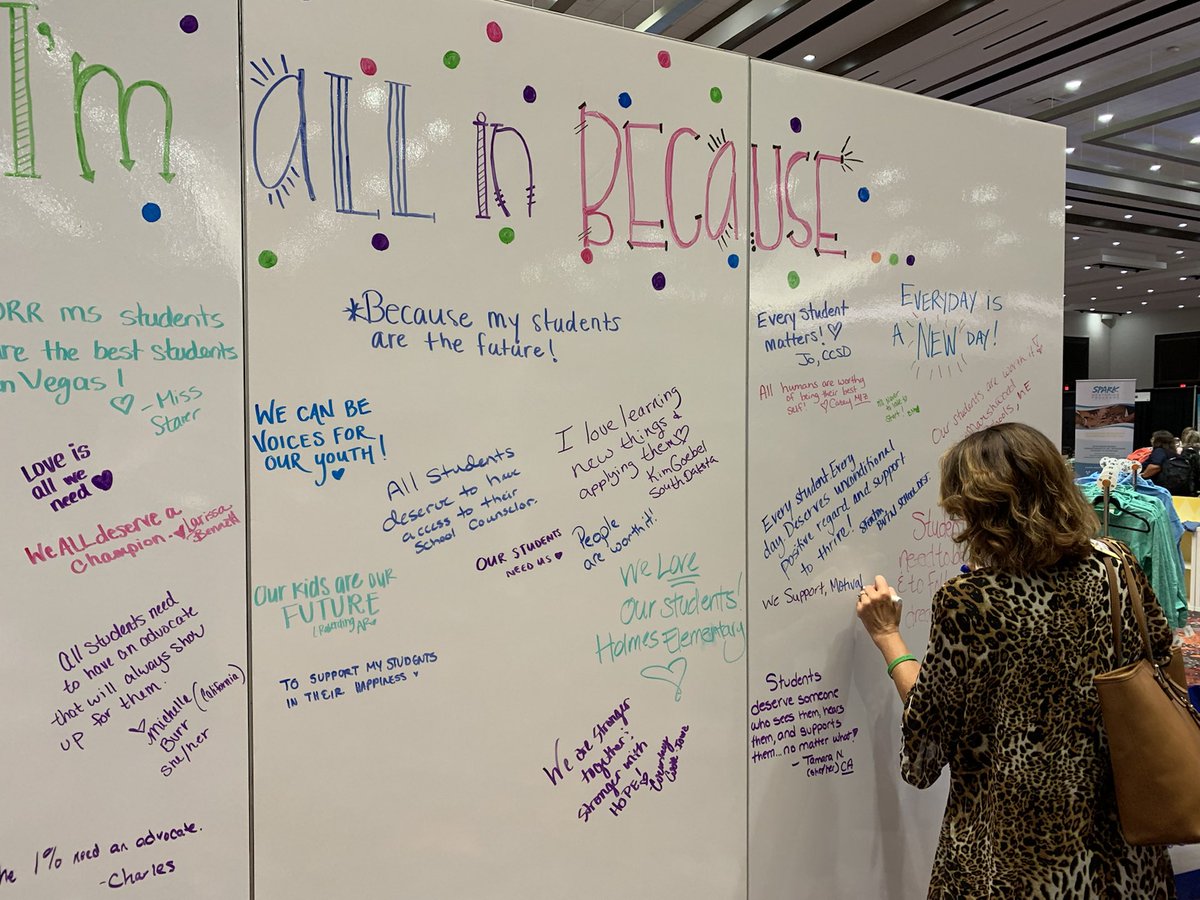 I'm all in BECause
ORR ms students
are the best students
in Vegas!
- Miss
Starer
Love is
all we
need
We ALL deserve a
champion. Larissa
Bennett
All Students need
to have an advocate
that will always show
up for them.
michelle (California)
Burr
she/her
the 1% need an advocate.
- Charles
*Because my students
are the future!
WE CAN BE
VOICES FOR
OUR YOUTH!
All Students
deserve to have
access to their
School Counselor.
I love learning
new things &
applying them
Kim Goebel
South Dakota
OUR STUDENTS
NEED US
People
are worth it!!
Our kids are our
FUTURE
We Love
Our Students!
Holmes Elementary
TO SUPPORT MY STUDENTS
IN THEIR HAPPINESS
We are stronger
together!
Stronger with
HOPE!
Iowa
Every student
matters!
Jo, CCSD
EVERYDAY IS
A "NEW" DAY!
All humans are worthy
of being their best
self! Casey
Our students are worth it!
Every student. Every
day. Deserves unconditional
positive regard and support
to thrive!
We Support, Motiva
Students
need to
& to
Students
deserve someone
who sees them, hears
them, and supports
them...no matter what!
- Tamara N.
(she/her) CA
SPARK